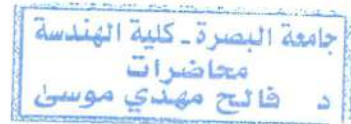 جامعة البصرة - كلية الهندسة
محاضرات
د فالح مهدي موسى